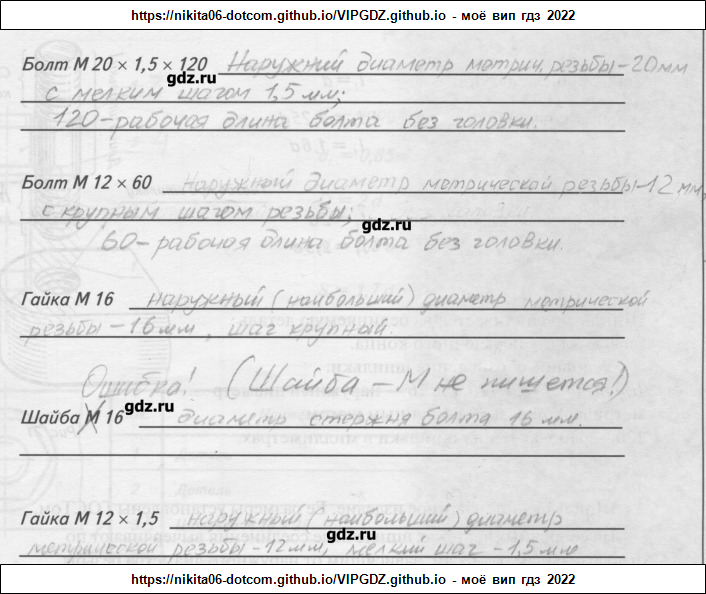 https://nikita06-dotcom.github.io/VIPGDZ.github.io - моё вип гдз 2022
Болт М 20 × 1,5 × 120 Наружний диаметр метрич. резьбы - 20 мм
gdz.ru
с мелким шагом 1,5 мм;
120 - рабочая длина болта без головки.
Болт М 12 × 60 Наружный диаметр метрической резьбы - 12 мм,
с крупным шагом резьбы,
gdz.ru
60 - рабочая длина болта без головки.
Гайка М 16 наружный (наибольший) диаметр метрической
резьбы - 16 мм, шаг крупный.
Ошибка! (Шайба - М не пишется!)
gdz.ru
Шайба М 16 диаметр стержня болта 16 мм.
Гайка М 12 × 1,5 наружный (наибольший) диаметр
gdz.ru
метрической резьбы - 12 мм, мелкий шаг - 1,5 мм
https://nikita06-dotcom.github.io/VIPGDZ.github.io - моё вип гдз 2022